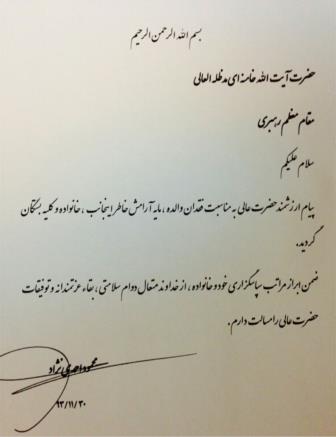 بسم الله الرحمن الرحیم
حضرت آیت الله خامنه ای مدظله العالی
مقام معظم رهبری
سلام علیکم
پیام ارزشمند حضرت عالی به مناسبت فقدان والده، مایه آرامش خاطر اینجانب، خانواده و کلیه بستگان
گردید.
ضمن ابراز مراتب سپاسگزاری خود و خانواده، از خداوند متعال دوام سلامتی، بقاء عزتمندانه و توفیقات
حضرت عالی را مسالت دارم.
محمود احمدی نژاد
۹۳/۱۱/۳۰